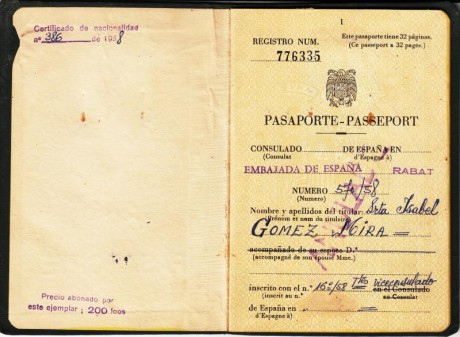 Certificado de nacionalidad
nº 386 de 1958
Precio abonado por
este ejemplar ; 200 fcos
I
REGISTRO NUM.
776335
Este pasaporte tiene 32 páginas.
(Ce passeport a 32 pages.)
PASAPORTE-PASSEPORT
CONSULADO DE ESPAÑA EN
(Consulat d'Espagne à)
EMBAJADA DE ESPAÑA RABAT
NUMERO 570/58
(Numero)
Nombre y apellidos del titular: Srta Isabel
(Prénom et nom du titulaire)
GOMEZ MIRA
acompañado de su esposa D.ª
(accompagné de son épouse Mme.)
inscrito con el n.º /58 viceconsulado en el Consulado
(inscrit au n.º au Consulat
de España en
d'Espagne à)